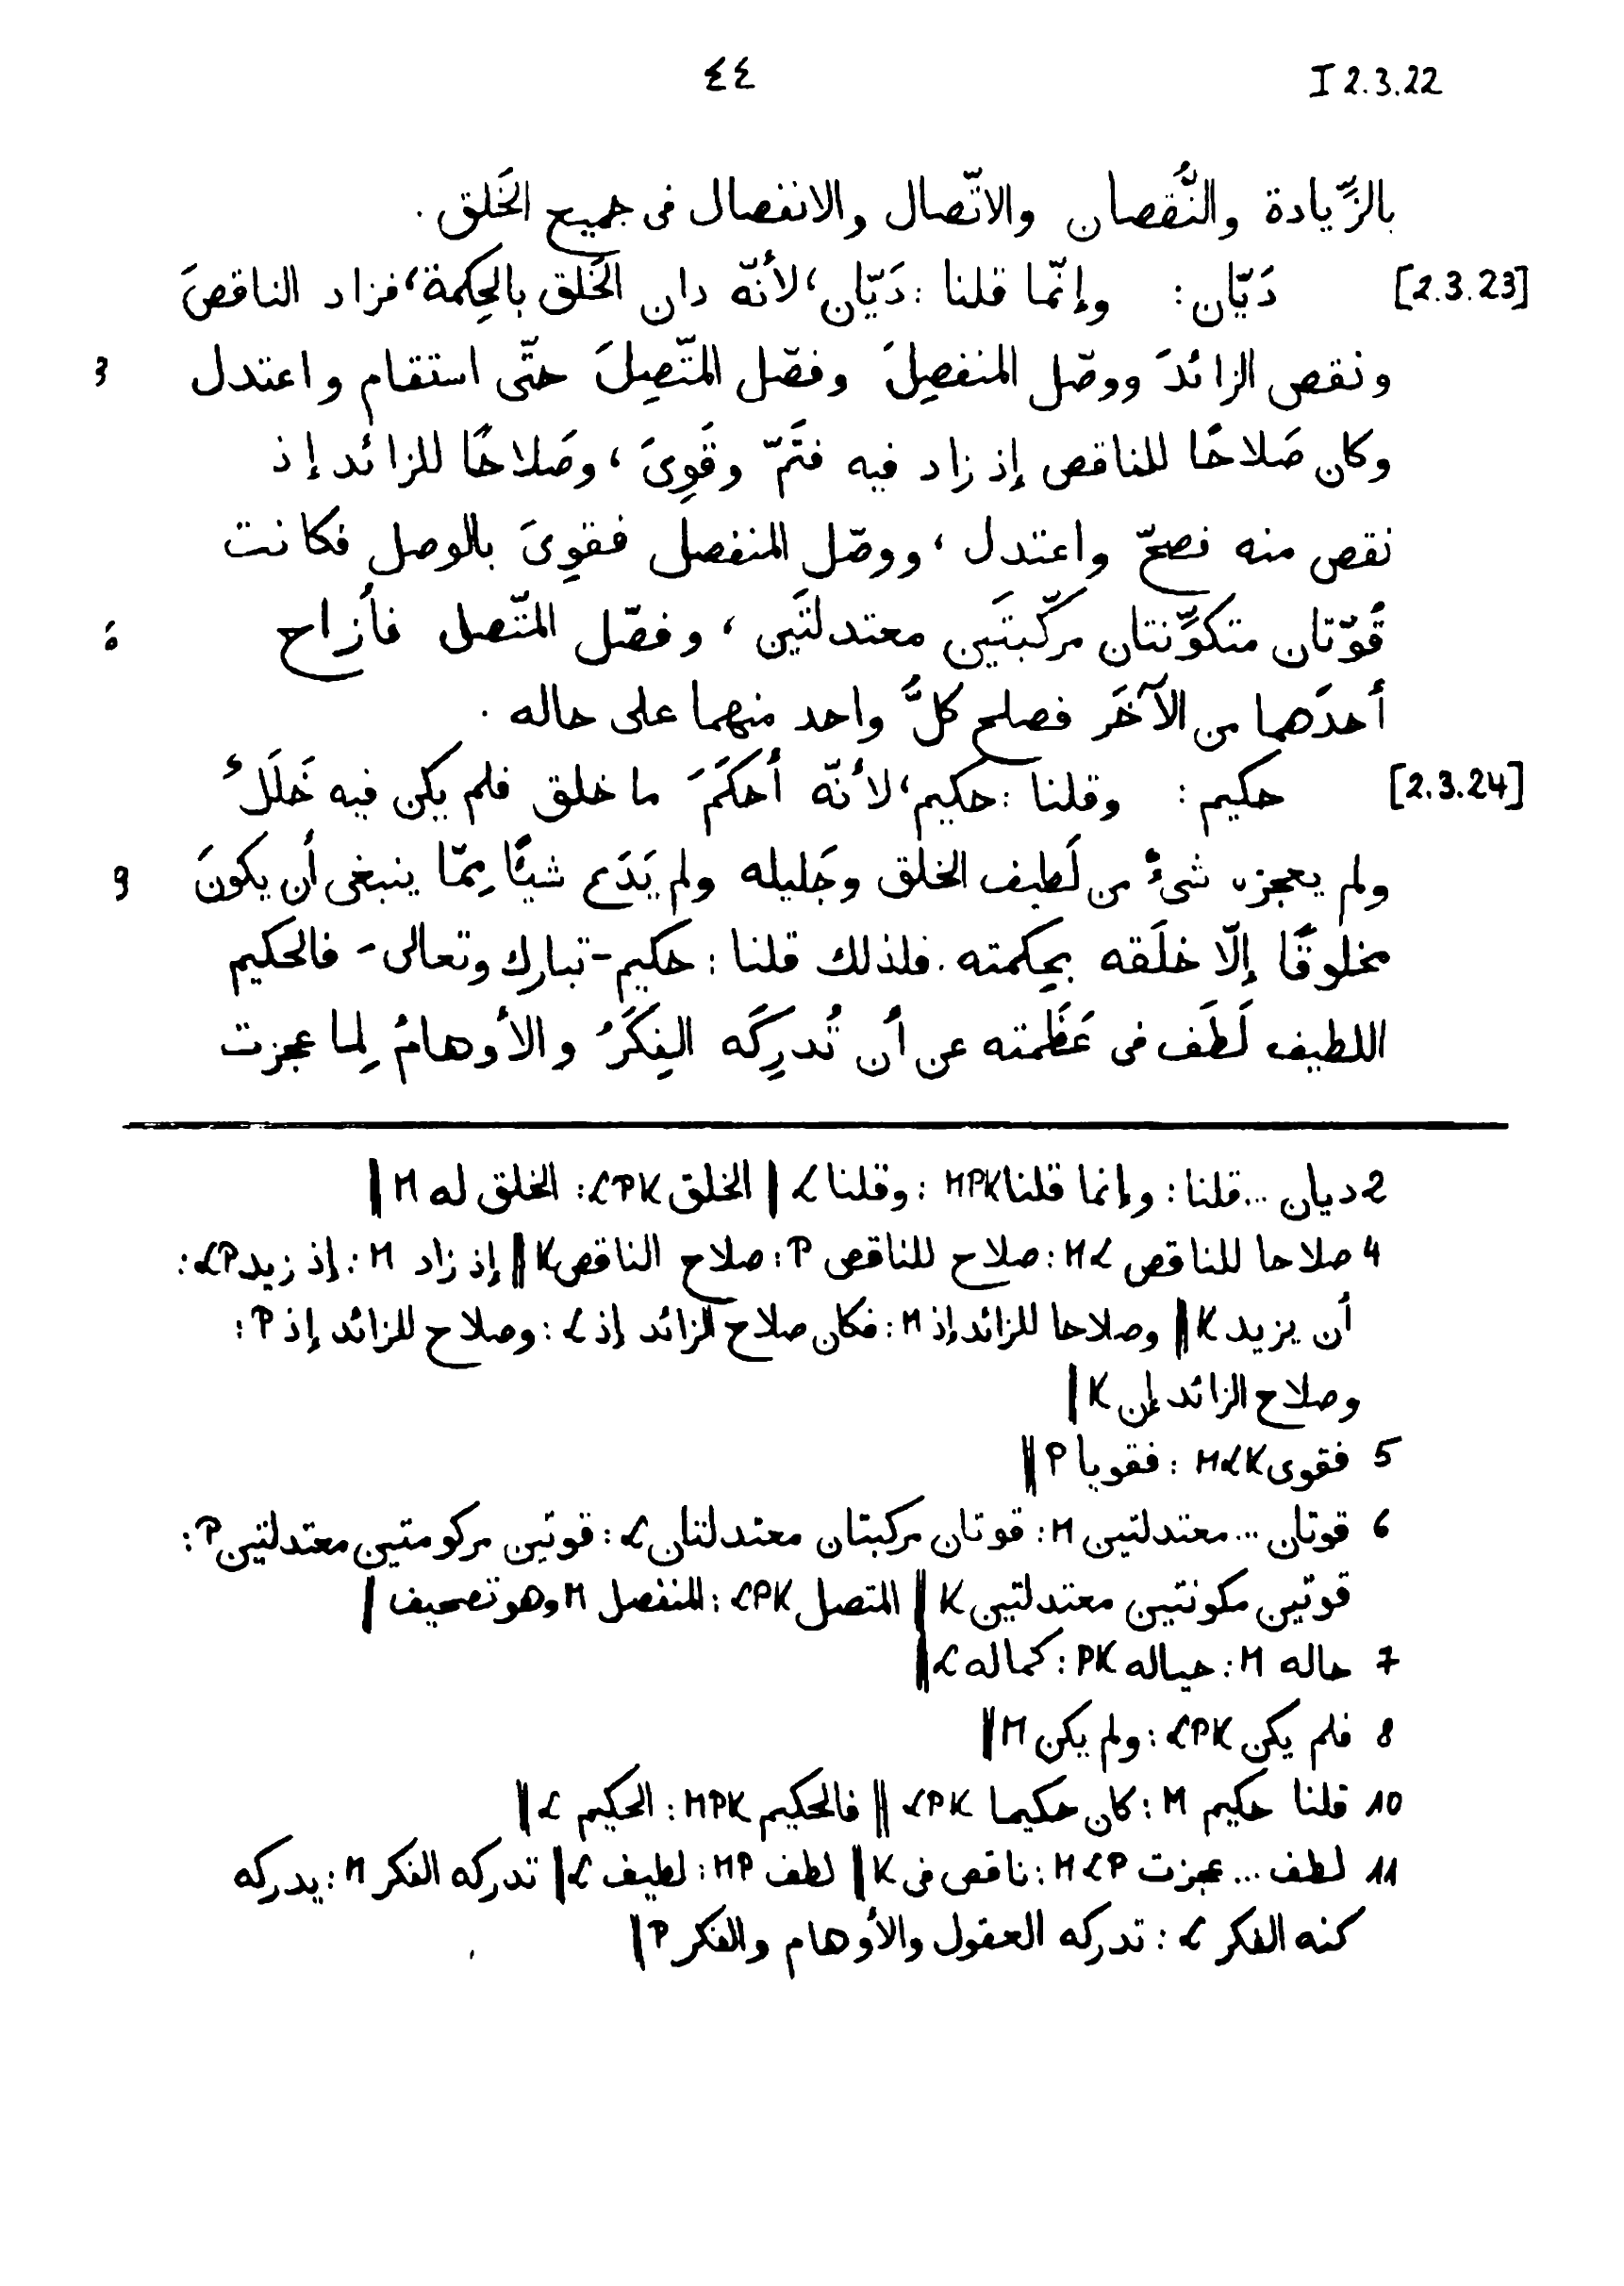 ٤٤ I 2.3.22
بالزِّيادة والنُّقصان والاتّصال والانفصال فى جميع الخَلق .
[2.3.23] دَيّان : وإنّما قلنا : دَيّان، لأنّه دان الخَلق بالحِكمة، فزاد الناقصَ
ونقص الزائدَ ووصّل المنفصِلَ وفصّل المتّصِلَ حتّى استقام واعتدل 3
وكان صَلاحًا للناقص إذ زاد فيه فتَمّ وقَوِىَ ، وصَلاحًا للزائد إذ
نقص منه فصحّ واعتدل ، ووصّل المنفصل فقوِىَ بالوصل فكانت
قُوّتان متكوِّنتان مركّبتَين معتدلتَين ، وفصّل المتّصل فأزاح 6
أحدَهما من الآخَر فصلح كلُّ واحد منهما على حاله .
[2.3.24] حكيم : وقلنا : حكيم، لأنّه أحكَمَ ما خلق فلم يكن فيه خَلَلٌ
ولم يعجزه شىءٌ من لَطيف الخلق وجَليله ولم يَدَع شيئًا مِمّا ينبغى أن يكونَ 9
مخلوقًا إلّا خلَقه بحِكمته . فلذلك قلنا : حكيم - تبارك وتعالى - فالحكيم
اللطيف لَطَف فى عَظَمته عن أن تُدرِكَه الفِكَرُ والأوهامُ لِما عجزت
2 ديان ... قلنا : وإنما قلنا MPK : وقلنا L || الخلق LPK : الخلق له M ||
4 صلاحا للناقص ML : صلاح للناقص P : صلاح الناقص K || إذ زاد M : إذ زيد LP :
أن يزيد K || وصلاحا للزائد إذ M : فكان صلاح الزائد إذ L : وصلاح للزائد إذ P :
وصلاح الزائد إن K ||
5 فقوى MLK : فقويا P ||
6 قوتان ... معتدلتين M : قوتان مركبتان معتدلتان L : قوتين مركومتين معتدلتين P :
قوتين مكونتين معتدلتين K || المتصل LPK : المنفصل M وهو تصحيف ||
7 حاله M : حياله PK : كماله L ||
8 فلم يكن LPK : ولم يكن M ||
10 قلنا حكيم M : كان حكيما LPK || فالحكيم MPK : الحكيم L ||
11 لطف ... عجزت MLP : ناقص فى K || لطف MP : لطيف L || تدركه الفكر M : يدركه
كنه الفكر L : تدركه العقول والأوهام والفكر P ||